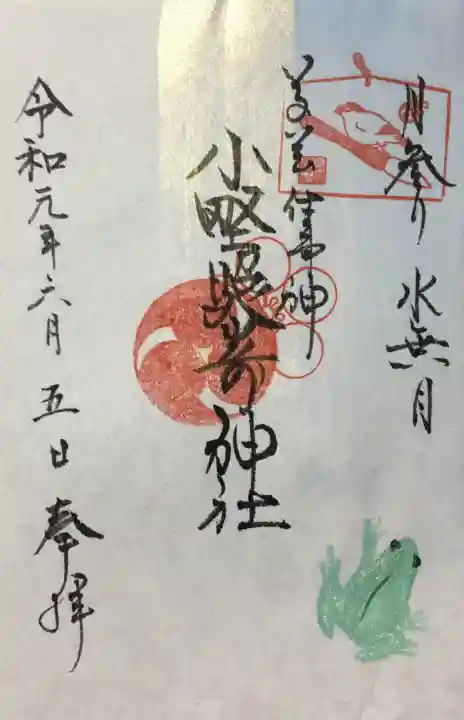 月参り 水無月
神
小野照崎神社
令和元年六月五日 奉拝